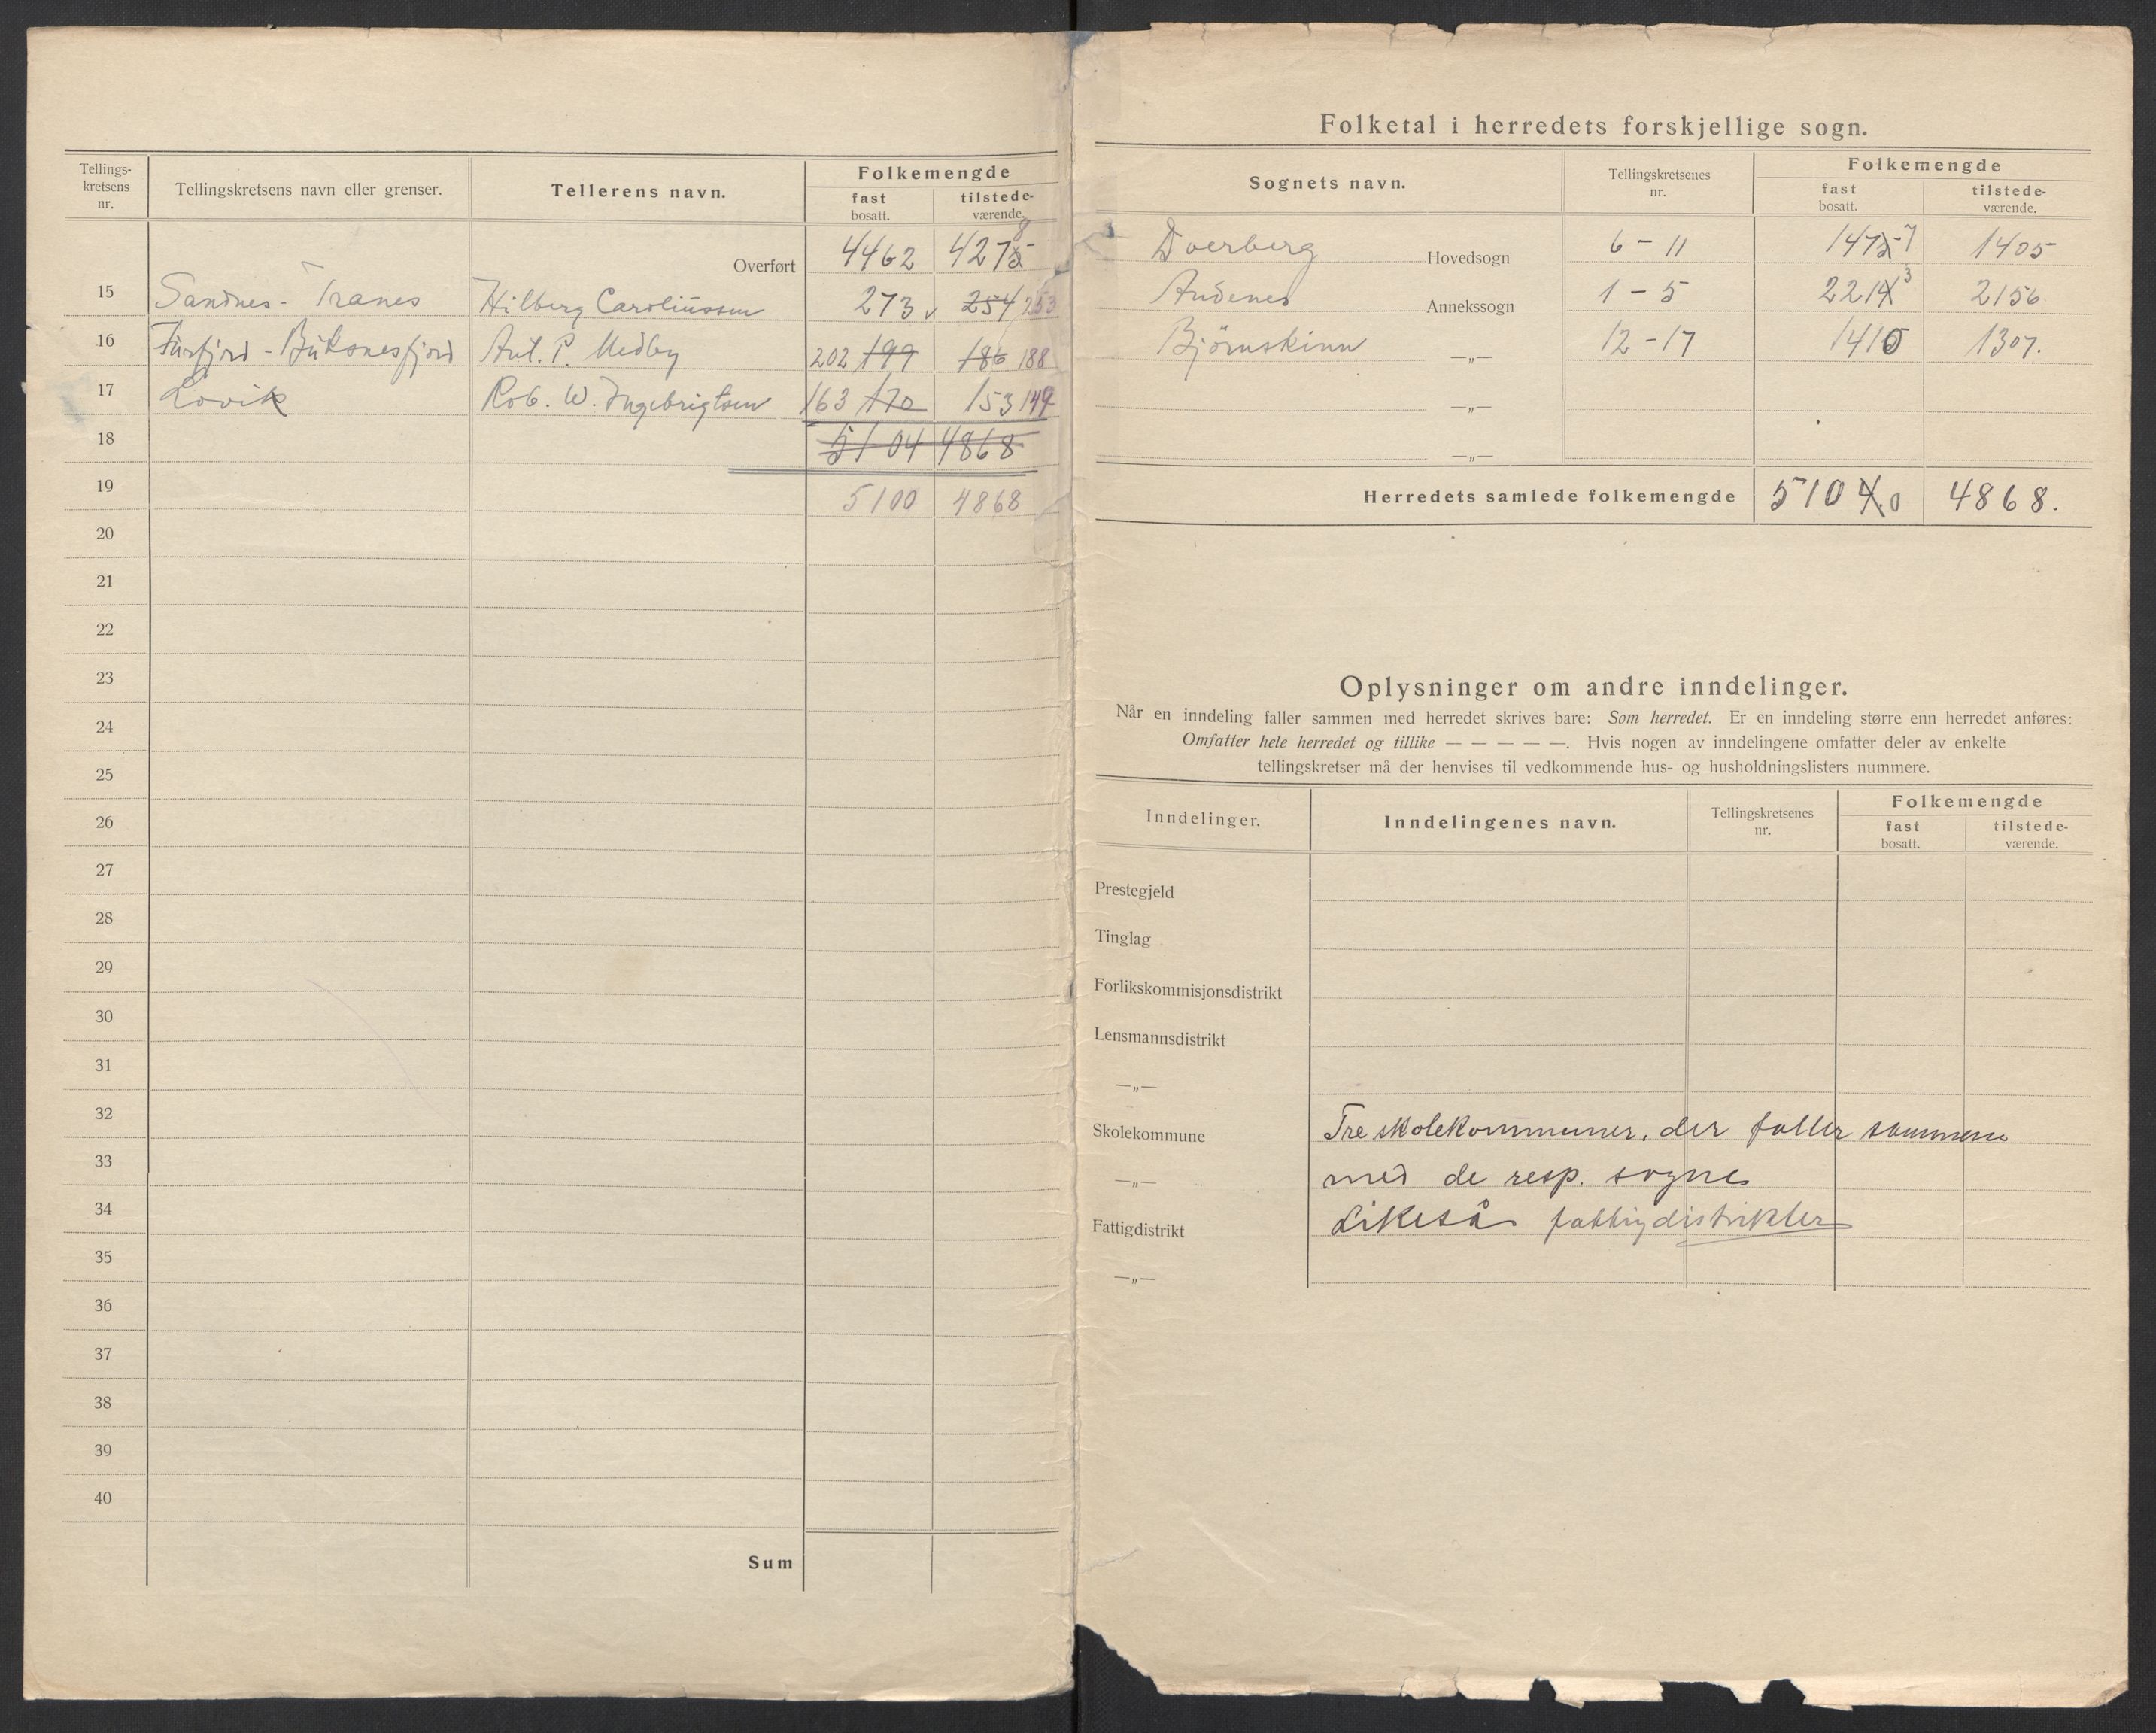 Tellings-
kretsens
nr.
Tellingskretsens navn eller grenser.
Tellerens navn.
Folkemengde
fast
bosatt.
tilstede-
værende.
Overført 4462 4278
15 Sandnes - Tranes Hilberg Caroliussen 273 254 253
16 Fúrfjord - Búksnesfjord Ant. P. Medby 202 199 186 188
17 Lovik Rob. W. Ingebrigtsen 163 170 153 149
18 5104 4868
19 5100 4868
20
21
22
23
24
25
26
27
28
29
30
31
32
33
34
35
36
37
38
39
40
Sum
Folketal i herredets forskjellige sogn.
Sognets navn.
Tellingskretsenes
nr.
Folkemengde
fast
bosatt.
tilstede-
værende.
Dverberg Hovedsogn 6 - 11 1477 1405
Andenes Annekssogn 1 - 5 2213 2156
Björnskinn —„— 12 - 17 1410 1307.
—„—
—„—
Herredets samlede folkemengde 5100 4868.
Oplysninger om andre inndelinger.
Når en inndeling faller sammen med herredet skrives bare: Som herredet. Er en inndeling større enn herredet anføres:
Omfatter hele herredet og tillike — — — — —. Hvis nogen av inndelingene omfatter deler av enkelte
tellingskretser må der henvises til vedkommende hus- og husholdningslisters nummere.
Inndelinger.
Inndelingenes navn.
Tellingskretsenes
nr.
Folkemengde
fast
bosatt.
tilstede-
værende.
Prestegjeld
Tinglag
Forlikskommisjonsdistrikt
Lensmannsdistrikt
—„—
Skolekommune Tre skolekommuner, der faller sammen
—„— med de resp. sogne
Fattigdistrikt Likeså fattigdistrikter
—„—